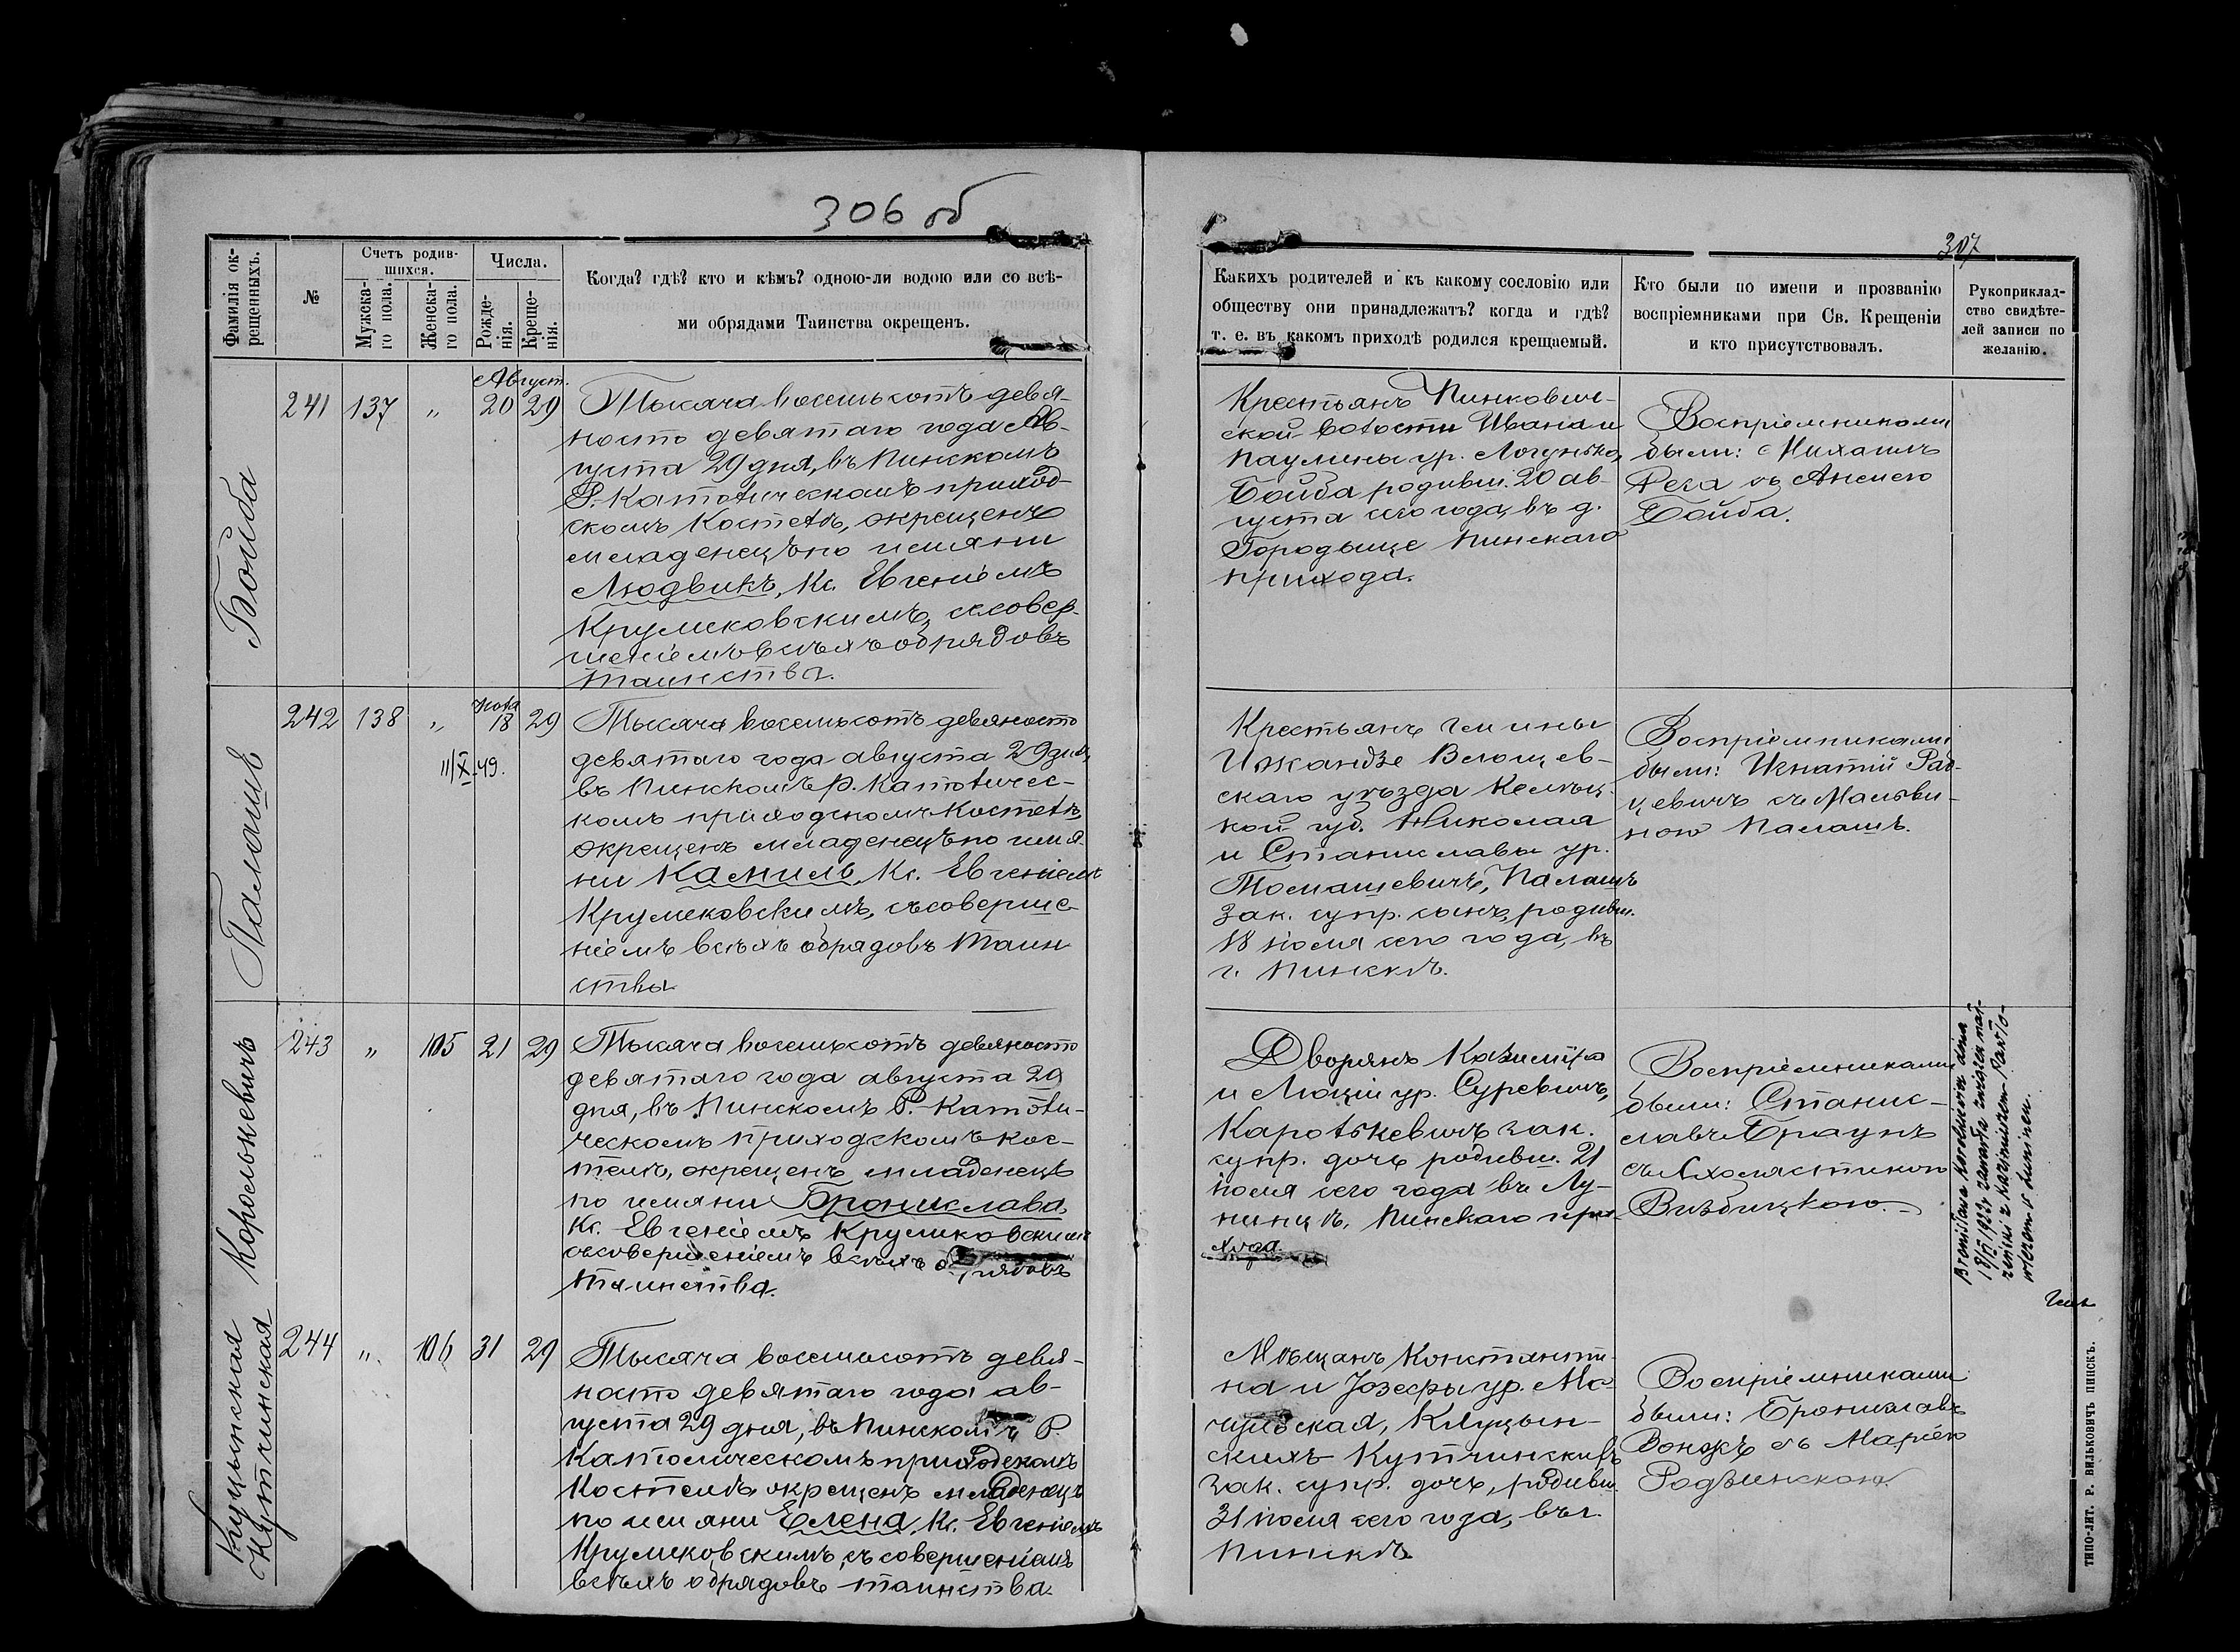 306 об
307
Фамилія ок-
рещенныхъ.
№
Счетъ родив-
шихся.
Мужеска-
го пола.
Женска-
го пола.
Числа.
Рожде-
нія.
Креще-
нія.
Когда? гдѣ? кто и кѣмъ? одною-ли водою или со всѣ-
ми обрядами Таинства окрещенъ.
Каких родителей и къ какому сословію или
обществу они принадлежатъ? когда и гдѣ?
т. е. въ какомъ приходѣ родился крещаемый.
Кто были по имени и прозванію
воспріемниками при Св. Крещеніи
и кто присутствовалъ.
Рукоприклад-
ство свидѣте-
лей записи по
желанію.
Бойба
241 137 " Август. 20 29
Тысяча восемьсотъ девя-
носто девятаго года Ав-
густа 29 дня, въ Пинскомъ
Р.-Католическомъ приход-
скомъ Костелѣ, окрещенъ
младенецъ по имяни
Людвикъ, Кс. Евгеніемъ
Крумсковскимъ, съ совер-
шеніемъ всѣхъ обрядовъ
таинства.
Крестьянъ Пинкович-
ской волости Ивана и
Паулины ур.
Бойба родивш. 20 ав-
густа сего года, въ д.
Городыще Пинскаго
прихода.
Воспріемниками
были: Михаилъ
съ
Бойба.
Палашъ
242 138 " Іюля 18 29
11/X 49.
Тысяча восемьсотъ девяносто
девятаго года августа 29 дня,
въ Пинскомъ Р. Католичес-
комъ приходскомъ Костелѣ,
окрещенъ младенецъ по имя-
ни Камиль, Кс. Евгеніемъ
Крумсковскимъ, съ соверше-
ніемъ всѣхъ обрядовъ таин
ства
Крестьянъ гмины
Влощев-
скаго уѣзда Келец-
кой губ. Николая
и Станиславы ур.
Томашевичъ, Палашъ
зак. супр. сынъ, родивш.
18 іюля сего года, въ
г. Пинскѣ.
Воспріемниками
были: Игнатій Рад-
цевичъ съ Мальви-
ною Палашъ.
Карольневичъ
243 " 105 21 29
Тысяча восемьсотъ девяносто
девятаго года августа 29
дня, въ Пинскомъ Р.-Католи-
ческомъ приходскомъ Кос-
телѣ, окрещенъ младенецъ
по имяни Брониславa,
Кс. Евгеніемъ Крумсковскимъ
съ совершеніемъ всѣхъ обрядовъ
таинства.
Дворянъ Казиміра
и Люціи ур. Суревичъ,
Каролькевичъ зак.
супр. дочь родивш. 21
іюля сего года въ Лу-
нинцѣ, Пинскаго при-
хода
Воспріемниками
были: Станис-
лавъ Браунъ
съ Схолястикою
Вербицкою.
Bronisława Korolkiewicz dnia
18/II 1923 r zawarła związek mał-
żeński z Kazimierzem Pawło-
wiczem w Łunincu.
Клуцынская
Кутчинская
244 " 106 31 29
Тысяча восемьсотъ девя-
носто девятаго года ав-
густа 29 дня, въ Пинскомъ Р.
Католическомъ приходскомъ
Костелѣ, окрещенъ младенецъ
по имяни Елена, Кс. Евгеніемъ
Крумсковскимъ, съ совершеніемъ
всѣхъ обрядовъ таинства
Мѣщанъ Константи-
на и Іозефы ур. Ма-
чульская, Клуцын-
скихъ-Кутчинскихъ
зак. супр. дочь, родивш.
31 іюля сего года, въ г.
Пинскѣ
Воспріемниками
были: Брониславъ
съ Маріею
Родзинскою
ТИПО-ЛИТ. Р. ВИЛЬКОВИЧЪ ПИНСКЪ.